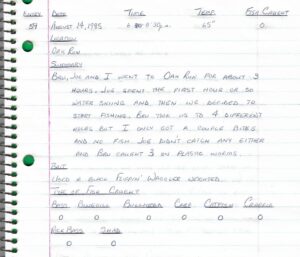 ENTRY DATE TIME TEMP FISH CAUGHT
59 AUGUST 14, 1985 6 8:30 p.m. 65° 0
LOCATION
OAK RUN
SUMMARY
BRU, JOE AND I WENT TO OAK RUN FOR ABOUT 3
HOURS. JOE SPENT THE FIRST HOUR OR SO
WATER SKIING AND THEN WE DECIDED TO
START FISHING. BRU TOOK US TO 4 DIFFERENT
AREAS BUT I ONLY GOT A COUPLE BITES
AND NO FISH. JOE DIDN'T CATCH ANY EITHER
AND BRU CAUGHT 3 ON PLASTIC WORMS.
BAIT
USED A BLACK FLIPPIN' WAGGLER WEIGHTED.
TYPE OF FISH CAUGHT
BASS BLUEGILL BULLHEADS CARP CATFISH CRAPPIE
0 0 0 0 0 0
ROCK BASS SHAD
0 0